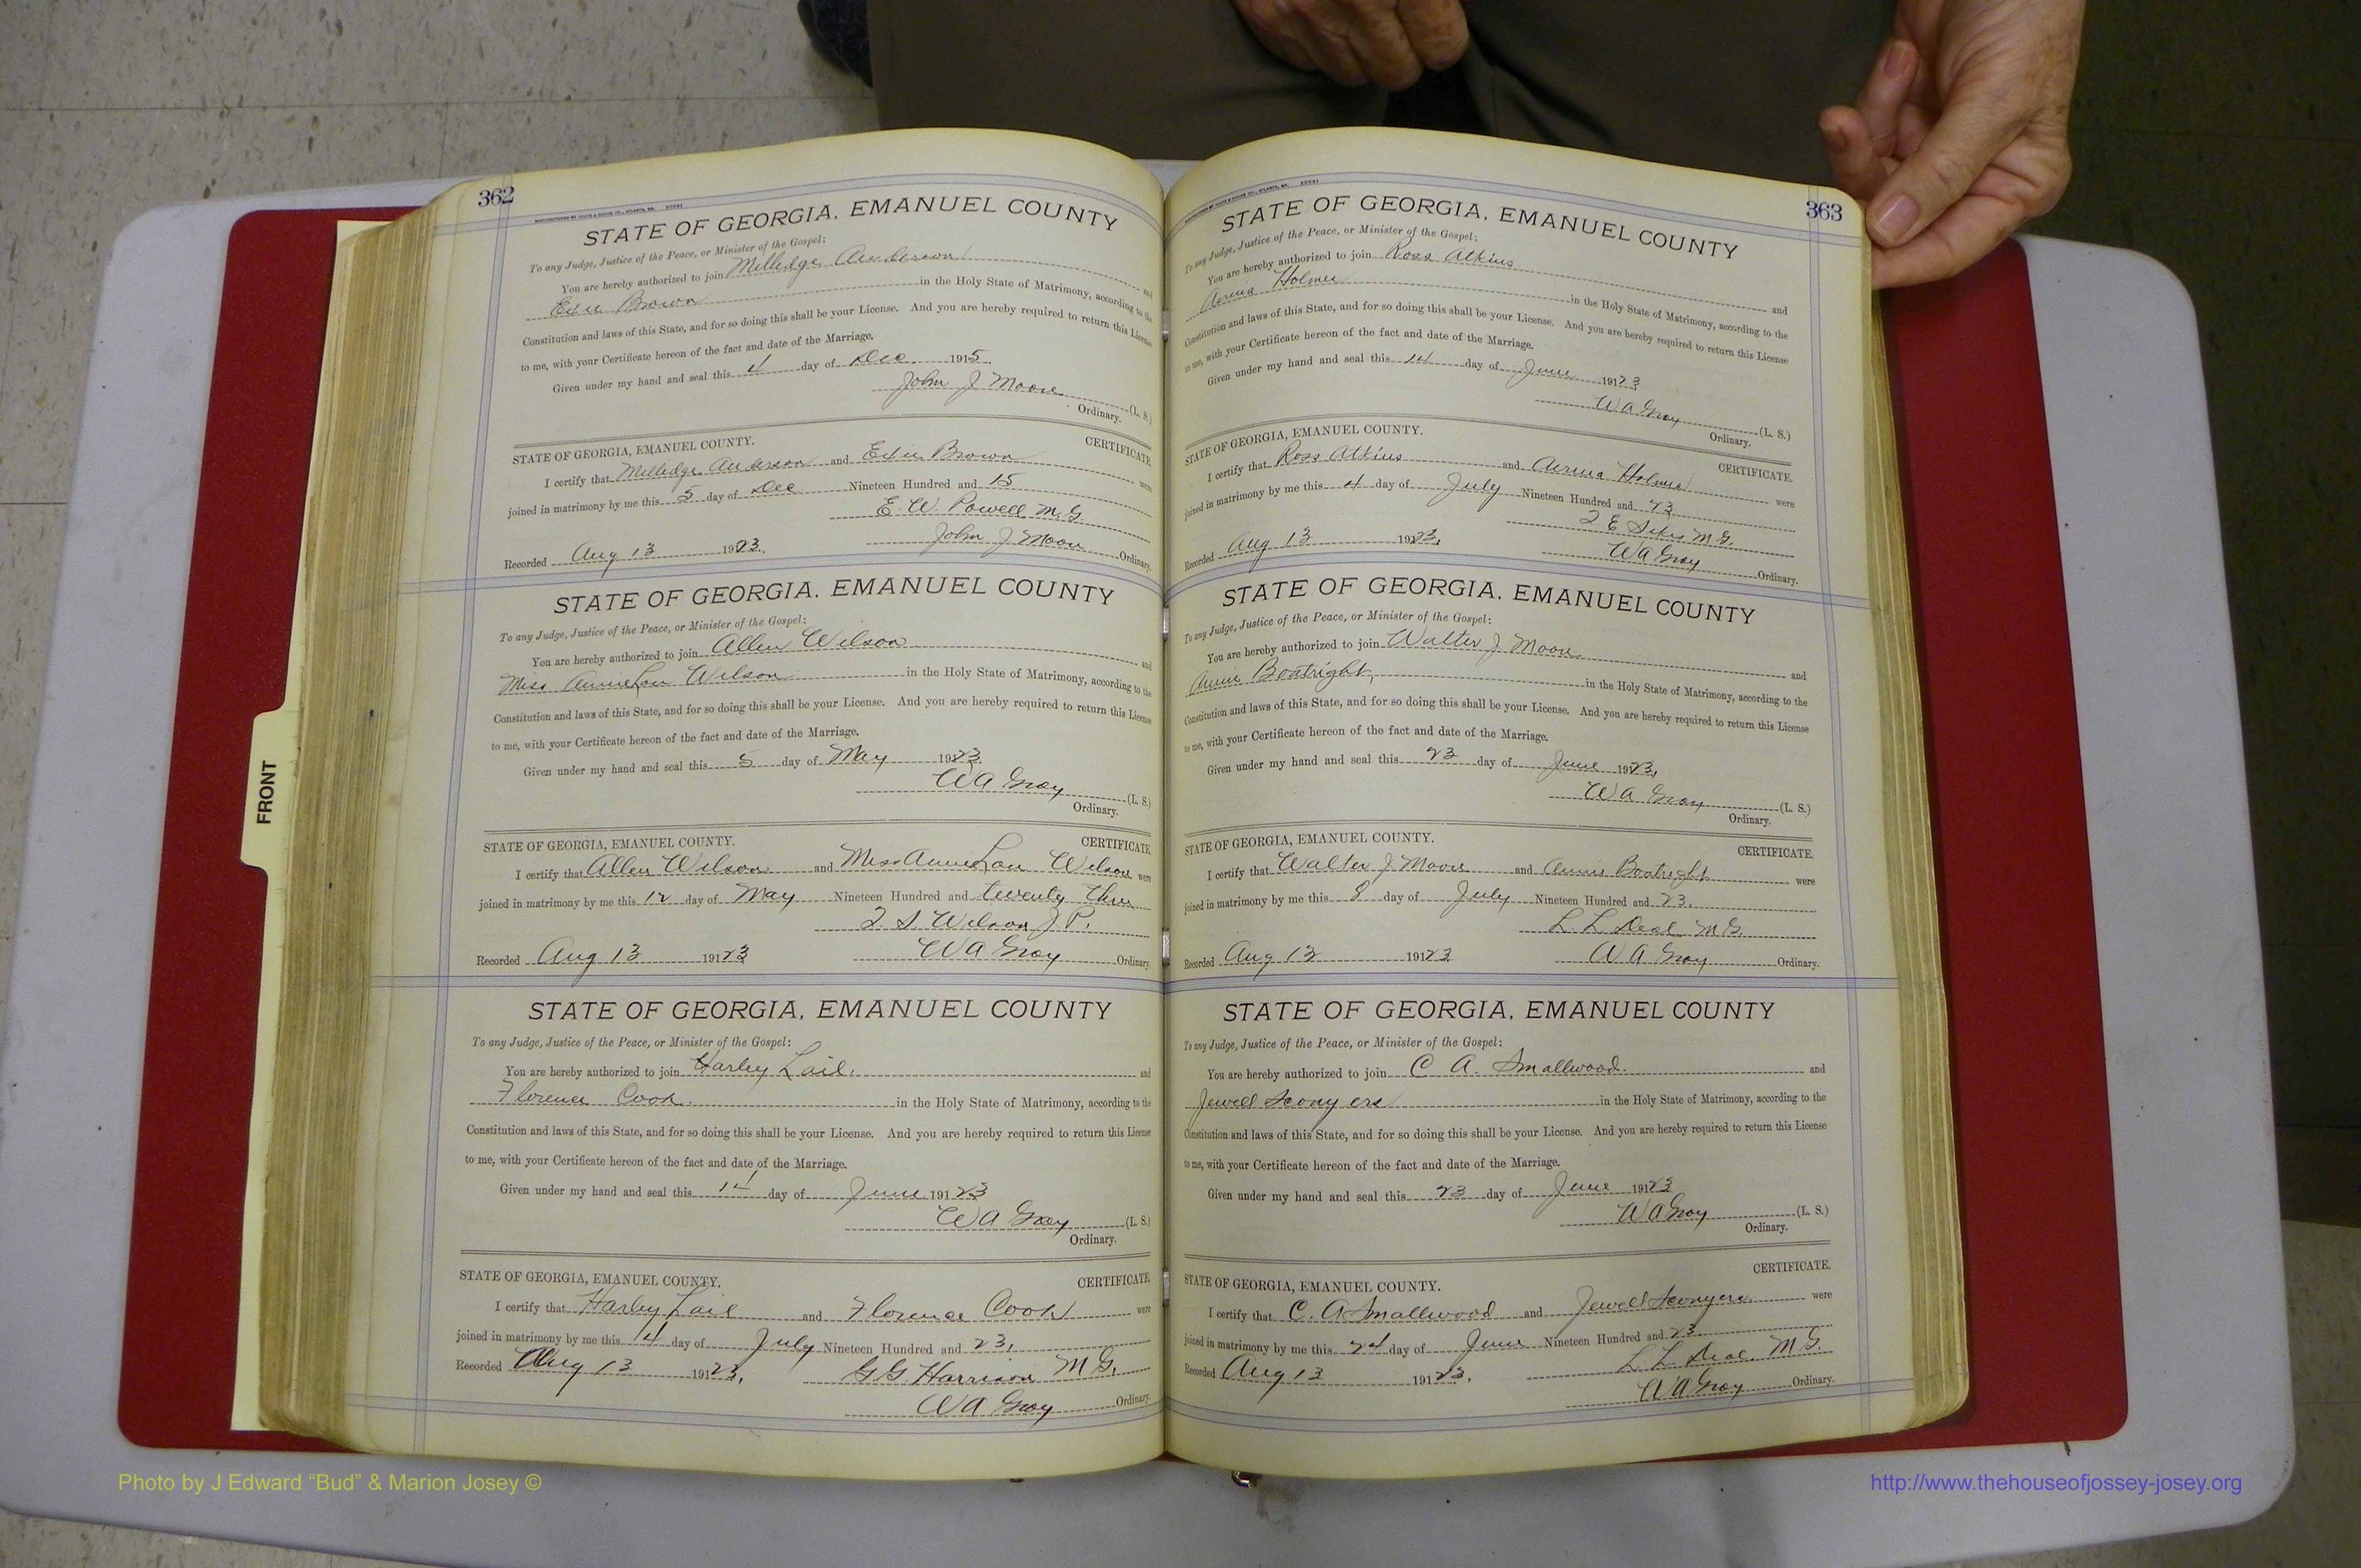 362
STATE OF GEORGIA, EMANUEL COUNTY
To any Judge, Justice of the Peace, or Minister of the Gospel:
You are hereby authorized to join Milledge Anderson and
Brown in the Holy State of Matrimony, according to the
Constitution and laws of this State, and for so doing this shall be your License. And you are hereby required to return this License
to me, with your Certificate hereon of the fact and date of the Marriage.
Given under my hand and seal this 4 day of Dec. 1915
John J Moore (L. S.)
Ordinary.
STATE OF GEORGIA, EMANUEL COUNTY. CERTIFICATE.
I certify that Milledge Anderson and Brown were
joined in matrimony by me this 5 day of Dec Nineteen Hundred and 15
E. W. Powell M. G.
Recorded Aug 13 1923. John J Moore Ordinary.
STATE OF GEORGIA, EMANUEL COUNTY
To any Judge, Justice of the Peace, or Minister of the Gospel:
You are hereby authorized to join Allen Wilson and
Miss Annie Lou Wilson in the Holy State of Matrimony, according to the
Constitution and laws of this State, and for so doing this shall be your License. And you are hereby required to return this License
to me, with your Certificate hereon of the fact and date of the Marriage.
Given under my hand and seal this 5 day of May 1923.
W A Gray (L. S.)
Ordinary.
STATE OF GEORGIA, EMANUEL COUNTY. CERTIFICATE.
I certify that Allen Wilson and Miss Annie Lou Wilson were
joined in matrimony by me this 12 day of May Nineteen Hundred and twenty three
Wilson J. P.
Recorded Aug 13 19123 W A Gray Ordinary.
STATE OF GEORGIA, EMANUEL COUNTY
To any Judge, Justice of the Peace, or Minister of the Gospel:
You are hereby authorized to join Harley Lail. and
Florence Cook. in the Holy State of Matrimony, according to the
Constitution and laws of this State, and for so doing this shall be your License. And you are hereby required to return this License
to me, with your Certificate hereon of the fact and date of the Marriage.
Given under my hand and seal this 14 day of June 19123
W A Gray (L. S.)
Ordinary.
STATE OF GEORGIA, EMANUEL COUNTY. CERTIFICATE.
I certify that Harley Lail and Florence Cook were
joined in matrimony by me this 14 day of July Nineteen Hundred and 23,
Recorded Aug 13 19123, G G Harrison M G.
W A Gray Ordinary.
363
STATE OF GEORGIA, EMANUEL COUNTY
To any Judge, Justice of the Peace, or Minister of the Gospel:
You are hereby authorized to join Ross Atkins and
Holmes in the Holy State of Matrimony, according to the
Constitution and laws of this State, and for so doing this shall be your License. And you are hereby required to return this License
to me, with your Certificate hereon of the fact and date of the Marriage.
Given under my hand and seal this 14 day of June 19123
W A Gray (L. S.)
Ordinary.
STATE OF GEORGIA, EMANUEL COUNTY. CERTIFICATE.
I certify that Ross Atkins and Holmes were
joined in matrimony by me this 4 day of July Nineteen Hundred and 23
M G.
Recorded Aug 13 1923, W A Gray Ordinary.
STATE OF GEORGIA, EMANUEL COUNTY
To any Judge, Justice of the Peace, or Minister of the Gospel:
You are hereby authorized to join Walter J Moore and
Annie Boatright, in the Holy State of Matrimony, according to the
Constitution and laws of this State, and for so doing this shall be your License. And you are hereby required to return this License
to me, with your Certificate hereon of the fact and date of the Marriage.
Given under my hand and seal this 23 day of June 1923,
W A Gray (L. S.)
Ordinary.
STATE OF GEORGIA, EMANUEL COUNTY. CERTIFICATE.
I certify that Walter J Moore and Annie Boatright were
joined in matrimony by me this 8 day of July Nineteen Hundred and 23.
L L Deal M G.
Recorded Aug 13 19123 W A Gray Ordinary.
STATE OF GEORGIA, EMANUEL COUNTY
To any Judge, Justice of the Peace, or Minister of the Gospel:
You are hereby authorized to join C A. Smallwood. and
Jewell Sconyers in the Holy State of Matrimony, according to the
Constitution and laws of this State, and for so doing this shall be your License. And you are hereby required to return this License
to me, with your Certificate hereon of the fact and date of the Marriage.
Given under my hand and seal this 23 day of June 19123
W A Gray (L. S.)
Ordinary.
STATE OF GEORGIA, EMANUEL COUNTY. CERTIFICATE.
I certify that C. A Smallwood and Jewell Sconyers. were
joined in matrimony by me this 24 day of June Nineteen Hundred and 23.
L L Deal. M G.
Recorded Aug 13 19123, W A Gray Ordinary.
FRONT
Photo by J Edward “Bud” & Marion Josey ©
http://www.thehouseofjossey-josey.org